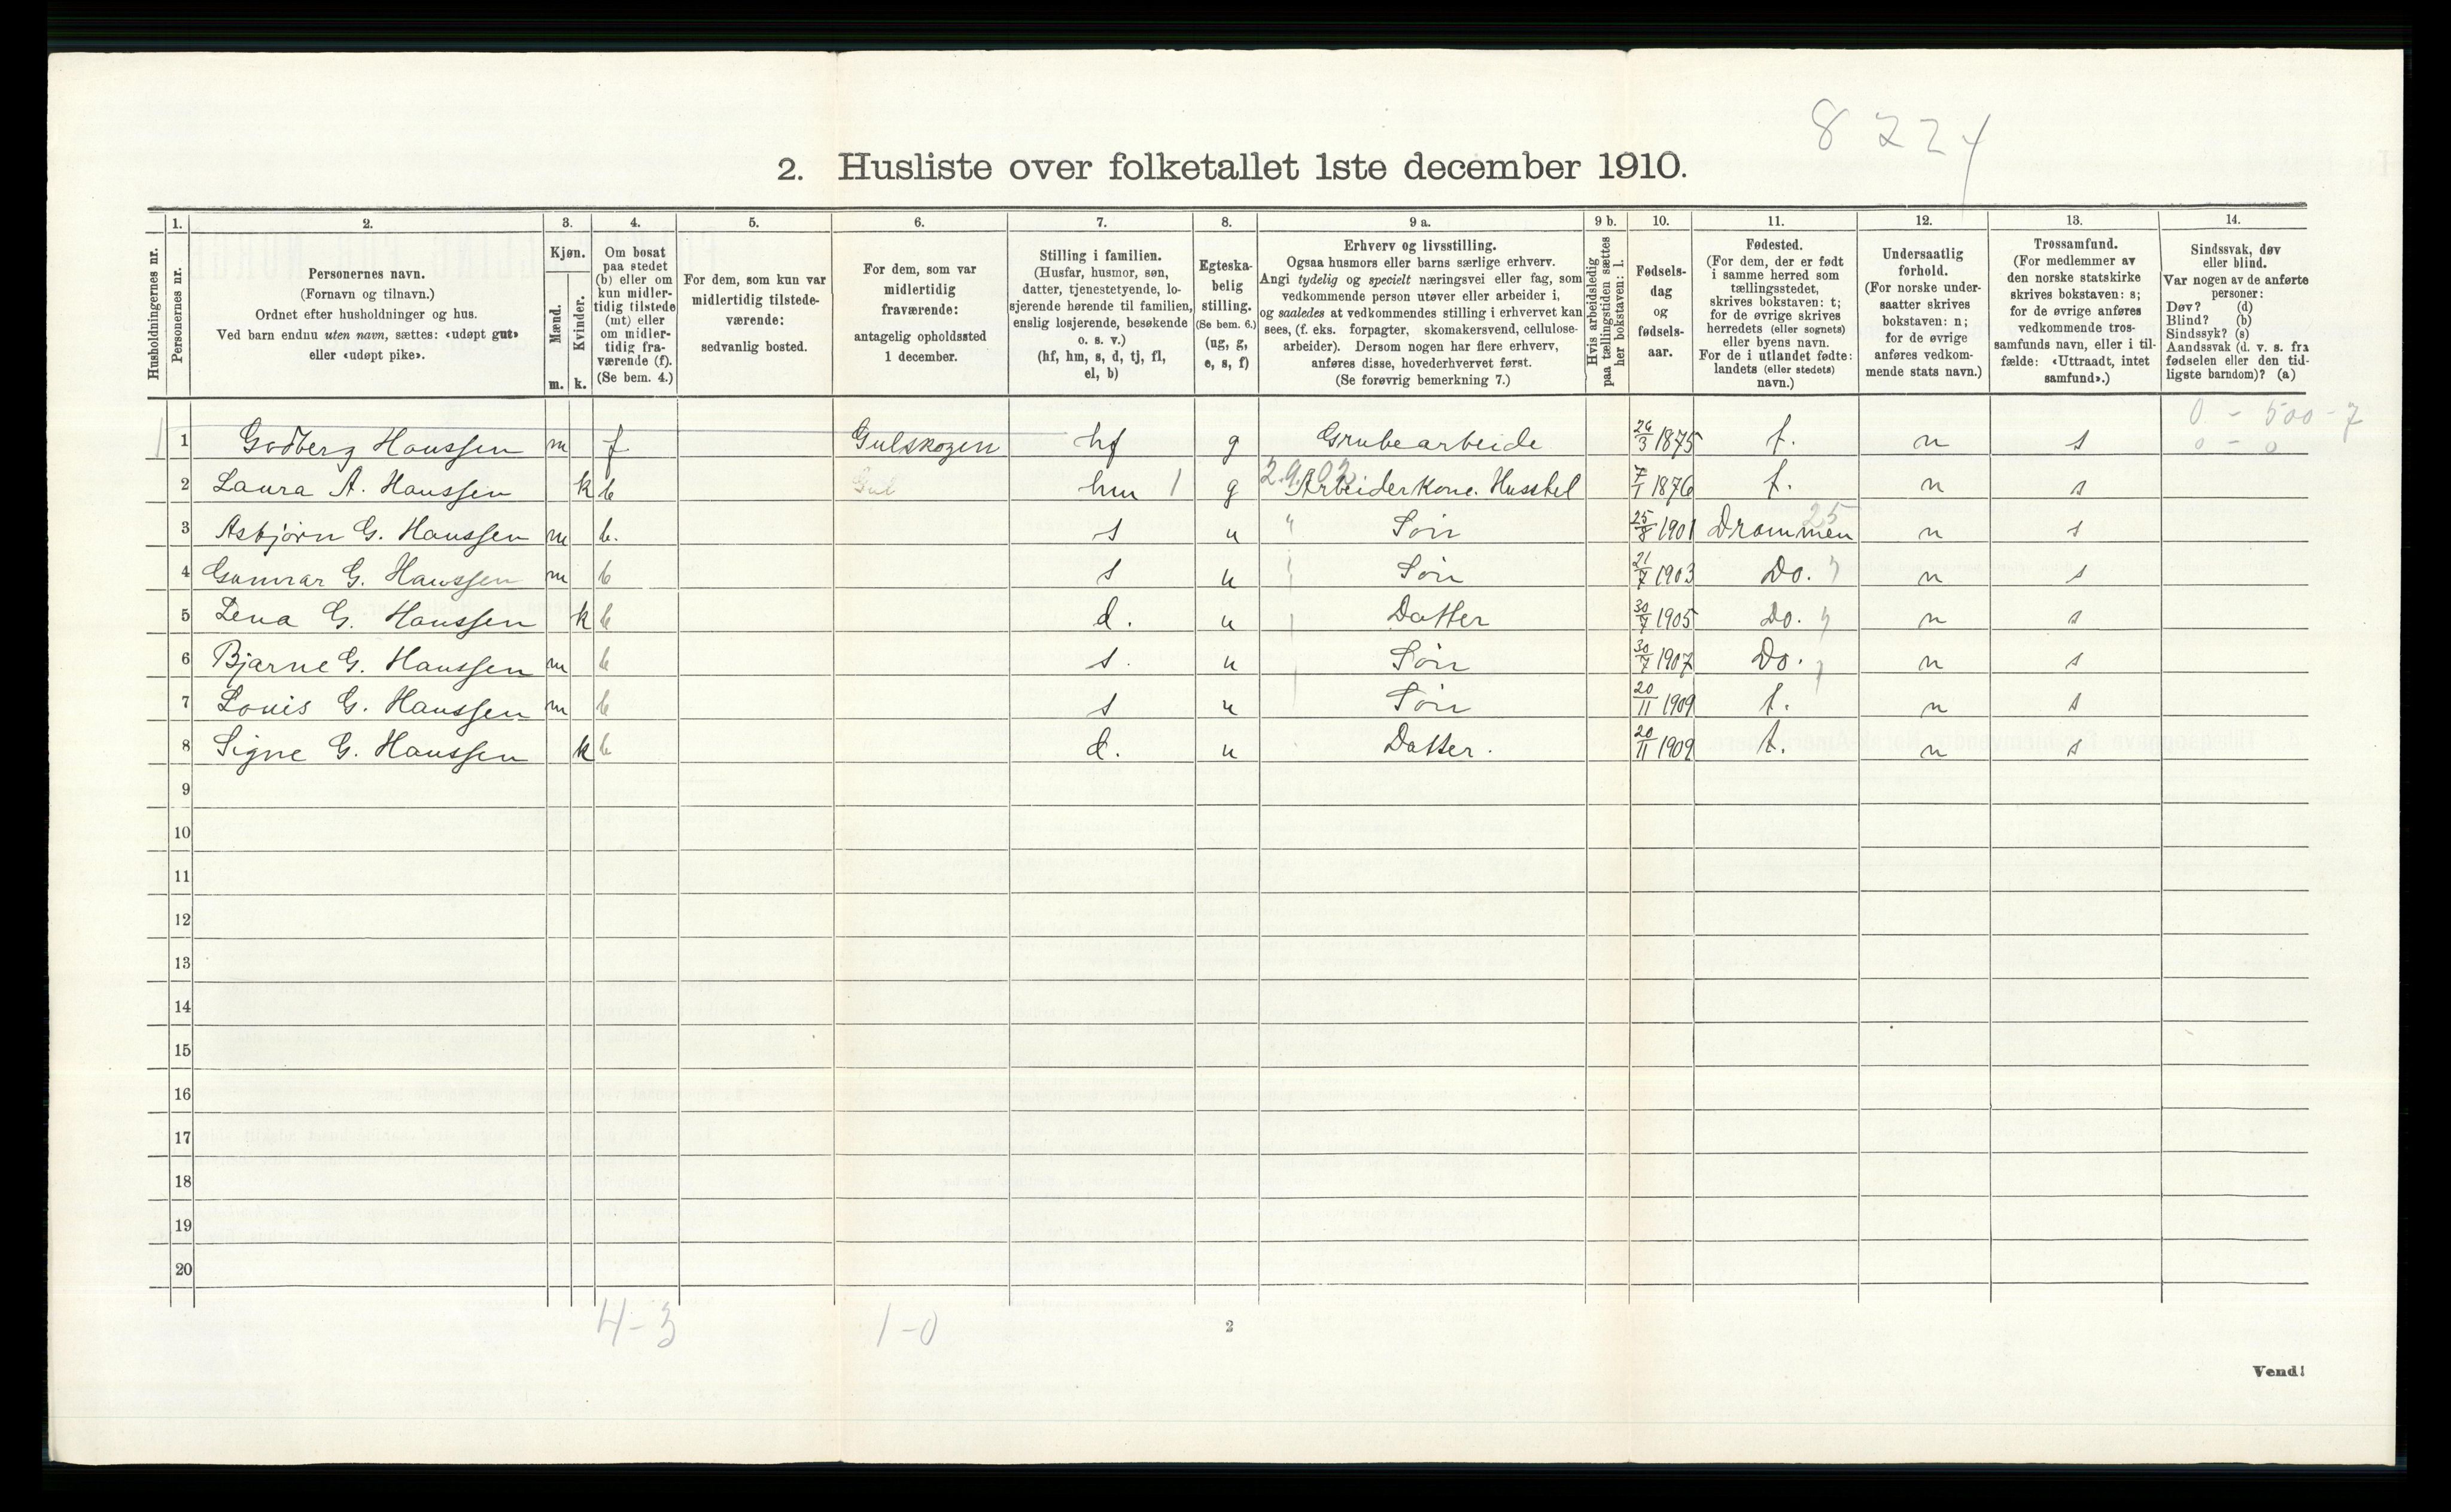 8 2 2 4
2. Husliste over folketallet 1ste december 1910.
Husholdningernes nr.
1. Personernes nr.
2. Personernes navn.
(Fornavn og tilnavn.)
Ordnet efter husholdninger og hus.
Ved barn endnu uten navn, sættes: «udøpt gut»
eller «udøpt pike».
3. Kjøn.
Mænd. m.
Kvinder. k.
4. Om bosat
paa stedet
(b) eller om
kun midler-
tidig tilstede
(mt) eller
om midler-
tidig fra-
værende (f).
(Se bem. 4.)
5. For dem, som kun var
midlertidig tilstede-
værende:
sedvanlig bosted.
6. For dem, som var
midlertidig
fraværende:
antagelig opholdssted
1 december.
7. Stilling i familien.
(Husfar, husmor, søn,
datter, tjenestetyende, lo-
sjerende hørende til familien,
enslig losjerende, besøkende
o. s. v.)
(hf, hm, s, d, tj, fl,
el, b)
8. Egteska-
belig
stilling.
(Se bem. 6.)
(ug, g,
e, s, f)
9 a. Erhverv og livsstilling.
Ogsaa husmors eller barns særlige erhverv.
Angi tydelig og specielt næringsvei eller fag, som
vedkommende person utøver eller arbeider i,
og saaledes at vedkommendes stilling i erhvervet kan
sees, (f. eks. forpagter, skomakersvend, cellulose-
arbeider). Dersom nogen har flere erhverv,
anføres disse, hovederhvervet først.
(Se forøvrig bemerkning 7.)
9 b. Hvis arbeidsledig
paa tællingstiden sættes
her bokstaven: l.
10. Fødsels-
dag
og
fødsels-
aar.
11. Fødested.
(For dem, der er født
i samme herred som
tællingsstedet,
skrives bokstaven: t;
for de øvrige skrives
herredets (eller sognets)
eller byens navn.
For de i utlandet fødte:
landets (eller stedets)
navn.)
12. Undersaatlig
forhold.
(For norske under-
saatter skrives
bokstaven: n;
for de øvrige
anføres vedkom-
mende stats navn.)
13. Trossamfund.
(For medlemmer av
den norske statskirke
skrives bokstaven: s;
for de øvrige anføres
vedkommende tros-
samfunds navn, eller i til-
fælde: «Uttraadt, intet
samfund».)
14. Sindssvak, døv
eller blind.
Var nogen av de anførte
personer:
Døv? (d)
Blind? (b)
Sindssyk? (s)
Aandssvak (d. v. s. fra
fødselen eller den tid-
ligste barndom)? (a)
0 - 500 - 7
1 1 Godberg Hanssen m f Gulskogen hf g Grubearbeide 26/3 1875 t. n s 0 - 0
2 Laura A. Hanssen k b Gul hm 1 g Arbeiderkone. Husstel 7/1 1876 t. n s
3 Asbjørn G. Hanssen m b. s u " Søn 25/8 1901 Drammen 25 n s
4 Gunnar G. Hanssen m b s u Søn 21/7 1903 Do. " n s
5 Lena G. Hanssen k b d. u Datter 30/7 1905 Do. " n s
6 Bjarne G. Hanssen m b s. u Søn 30/7 1907 Do. n s
7 Louis G. Hanssen m b s u Søn 20/11 1909 t. n s
8 Signe G. Hanssen k b d. u Datter. 20/11 1909 t. n s
9
10
11
12
13
14
15
16
17
18
19
20
4-3 1-0
2
Vend!